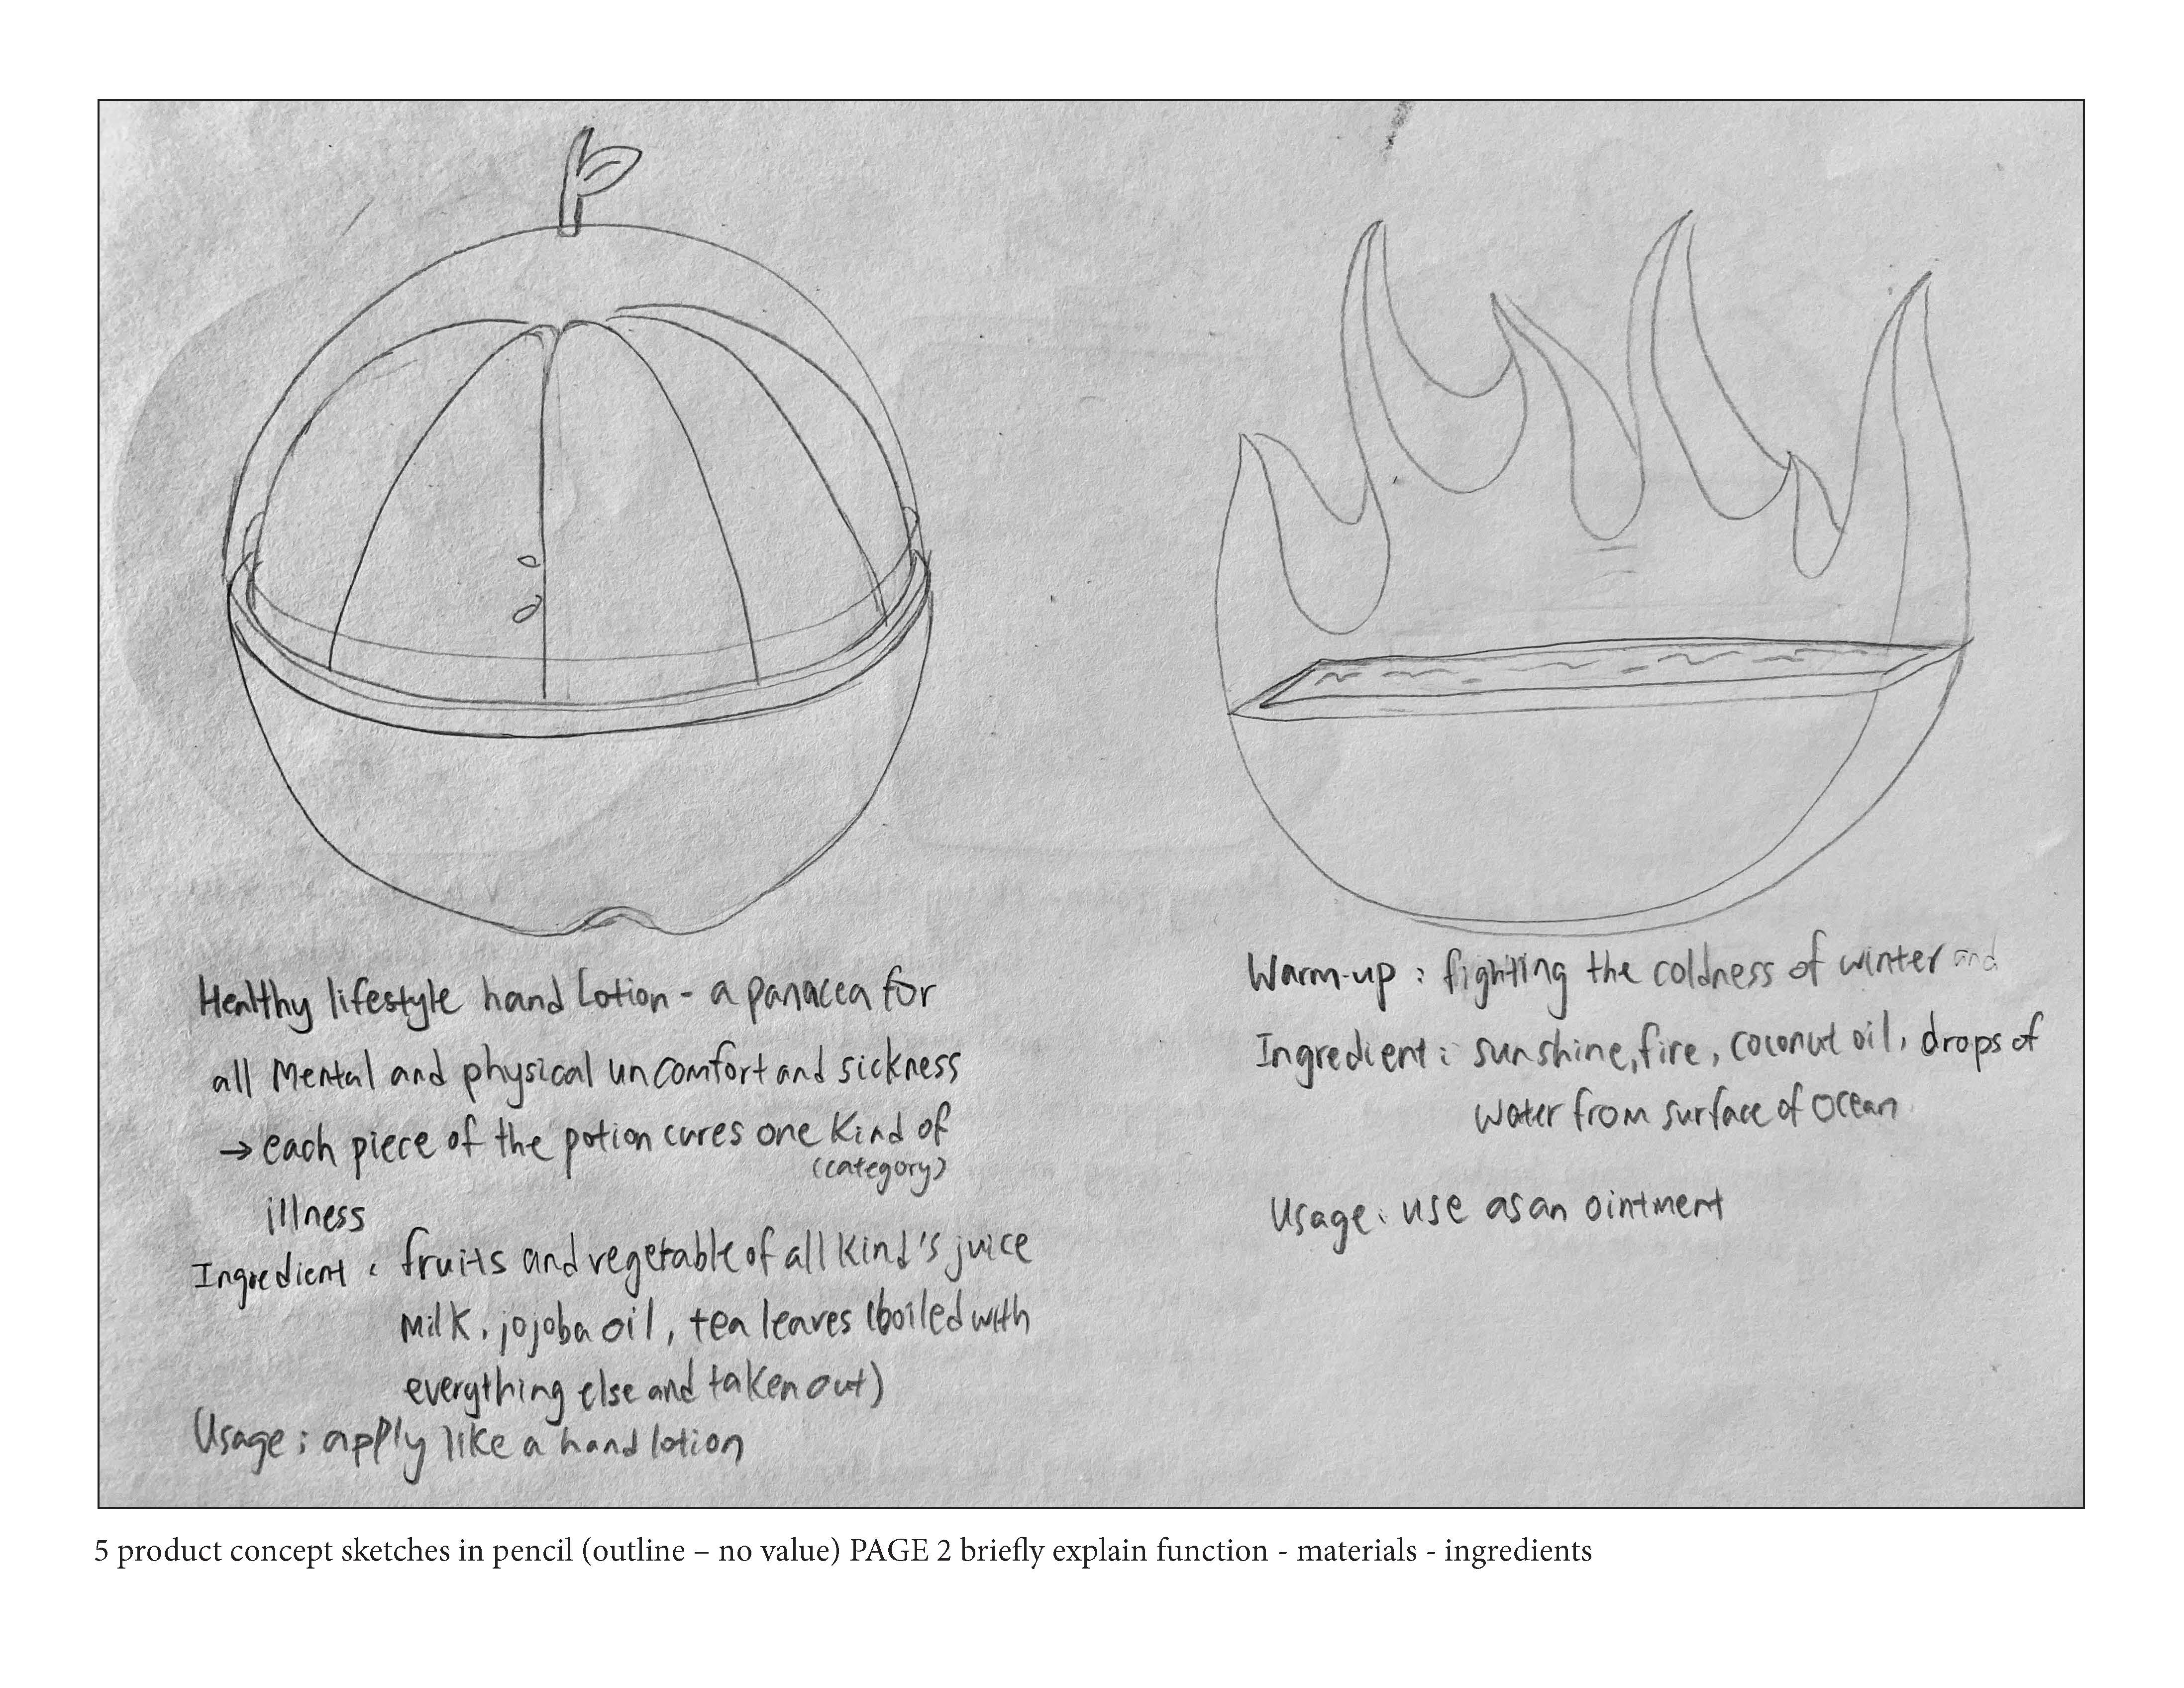 Healthy lifestyle hand lotion - a panacea for
all Mental and physical uncomfort and sickness
→ each piece of the potion cures one kind of
(category)
illness
Ingredient : fruits and vegetable of all kind's juice
Milk, jojoba oil, tea leaves (boiled with
everything else and taken out)
Usage : apply like a hand lotion
Warm-up : fighting the coldness of winter and
Ingredient : sunshine, fire, coconut oil, drops of
water from surface of ocean
Usage : use as an ointment
5 product concept sketches in pencil (outline – no value) PAGE 2 briefly explain function - materials - ingredients